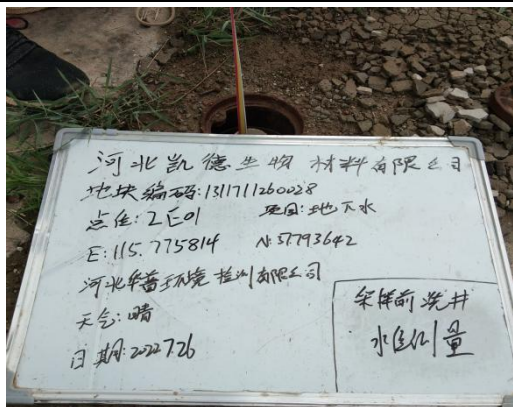 河北凯德生物材料有限公司
地块编码:1311711260028
点位:2E01 项目:地下水
E:115.775814 N:37.793642
河北华普环境检测有限公司
天气:晴
日期:2022.7.26
采样前洗井
水位测量